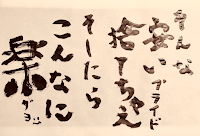 そんな
安い
プライド
捨てちゃえ
そしたら
こんなに
楽
ダヨ